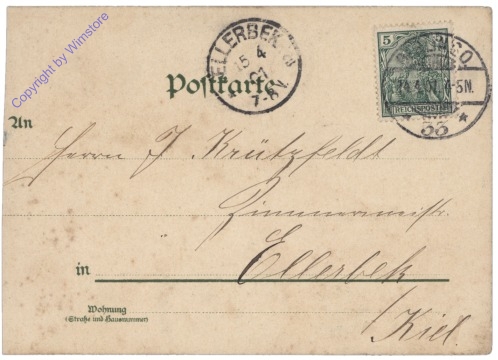 Copyright by Wimstore
ELLERBEK
15 4
01
7-8V.
5
REICHSPOST
14.4.01. 4-5N.
Postkarte
An
Herrn J. Krützfeldt
Zimmermstr.
in Ellerbek
Wohnung
(Straße und Hausnummer)
/Kiel.